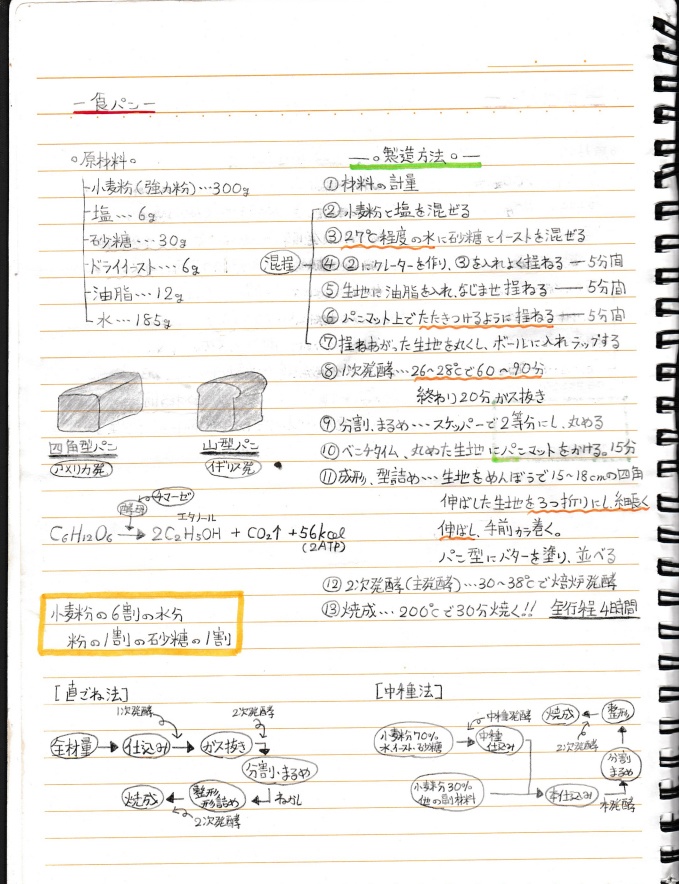 －食パン－
○原材料○
小麦粉(強力粉)…300g
塩…6g
砂糖…30g
ドライイースト…6g
油脂…12g
水…185g
四角型パン
アメリカ発
山型パン
イギリス発
チマーゼ
酵母
エタノール
C6H12O6→2C2H5OH + CO2↑ +56kcal
(2ATP)
小麦粉の6割の水分
粉の1割の砂糖の1割
―○製造方法○―
①材料の計量
混捏
②小麦粉と塩を混ぜる
③27℃程度の水に砂糖とイーストを混ぜる
④②にクレーターを作り、③を入れよく捏ねる ― 5分間
⑤生地に油脂を入れ、なじませ捏ねる ― 5分間
⑥パンマット上でたたきつけるように捏ねる ― 5分間
⑦捏ねあがった生地を丸くし、ボールに入れラップする
⑧1次発酵…26~28℃で60~90分
終わり20分ガス抜き
⑨分割、まるめ…スケッパーで2等分にし、丸める
⑩ベンチタイム、丸めた生地にパンマットをかける。15分
⑪成形、型詰め…生地をめんぼうで15~18cmの四角
伸ばした生地を3つ折りにし、細長く
伸ばし、手前から巻く。
パン型にバターを塗り、並べる
⑫2次発酵(主発酵)…30~38℃で焙炉発酵
⑬焼成…200℃で30分焼く!! 全行程4時間
[直ごね法]
1次発酵
2次発酵
全材量→仕込み→ガス抜き
分割・まるめ
ねかし
整形
形詰め
焼成
2次発酵
[中種法]
小麦粉70%
水・イスト・砂糖
中種発酵
中種
仕込み
小麦粉30%
他の副材料
本仕込み
本発酵
分割
まるめ
整形
2次発酵
焼成